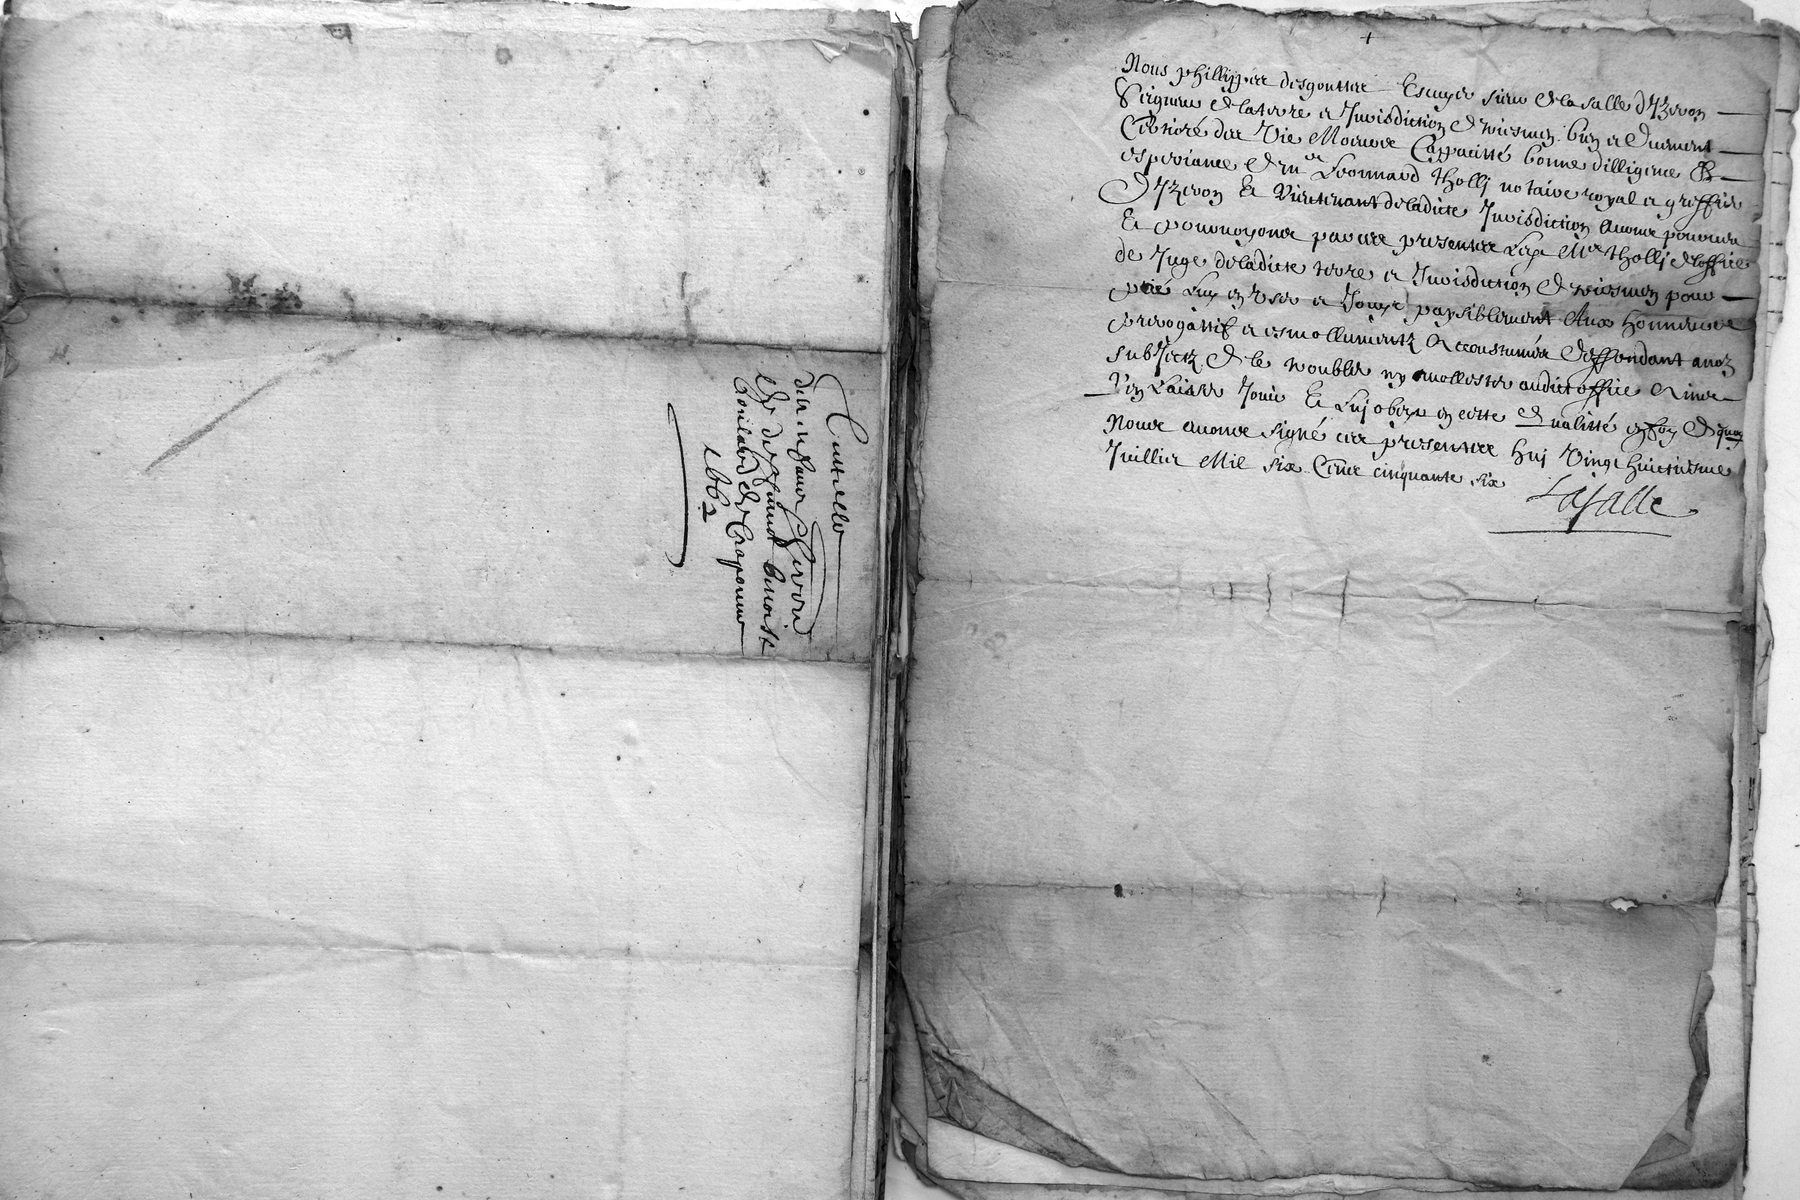 Tutelle
des enfans
de deffunct benoist
de Craponne
1662
+
Nous phillippes desgouttes Escuyer sieur de la salle d'Izeron
Seigneur de la terre et Jurisdiction de bien et duement
Certioré des Vie Moeurs Cappacitté bonne dilligence &
experiance de me Leonnard tholly notaire royal et greffier
D'Izeron Et Lieutenant de ladicte Jurisdiction Avons pourveu
Et pourvoyons par ces presentes Led Me tholly de loffice
de Juge de ladicte terre et Jurisdiction de pour
par Luy en User et Jouyr paysiblement Aux honneurs
prerogattif et esmollumentz Accoustumés deffendant a noz
subjectz de le troubler ny mollester audict office Ains
L'en Laisser Jouir Et Luy obeyr en cette quallitté en foy de quoy
Nous avons signé ces presentes huy Vingt huictiesme
Juillet Mil six Cens cinquante six
Lasalle